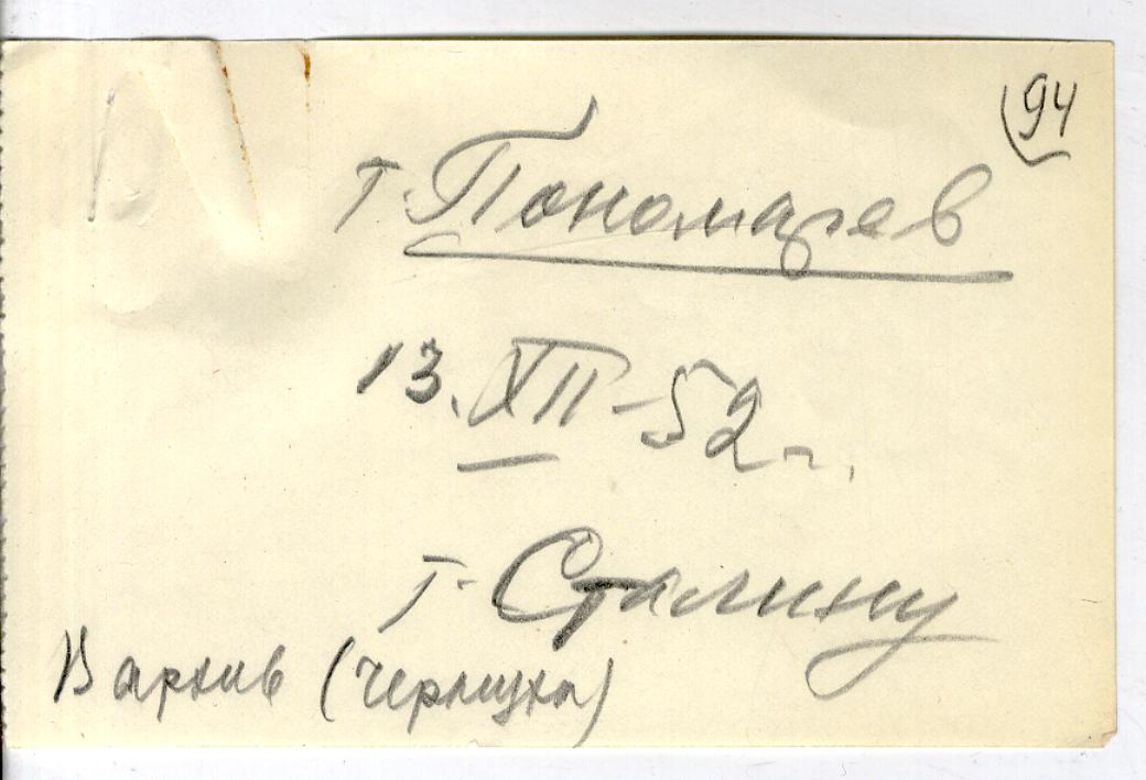 94
т. Пономарев
13. XII-52 г.
т. Сталину
В архив (Чернуха)